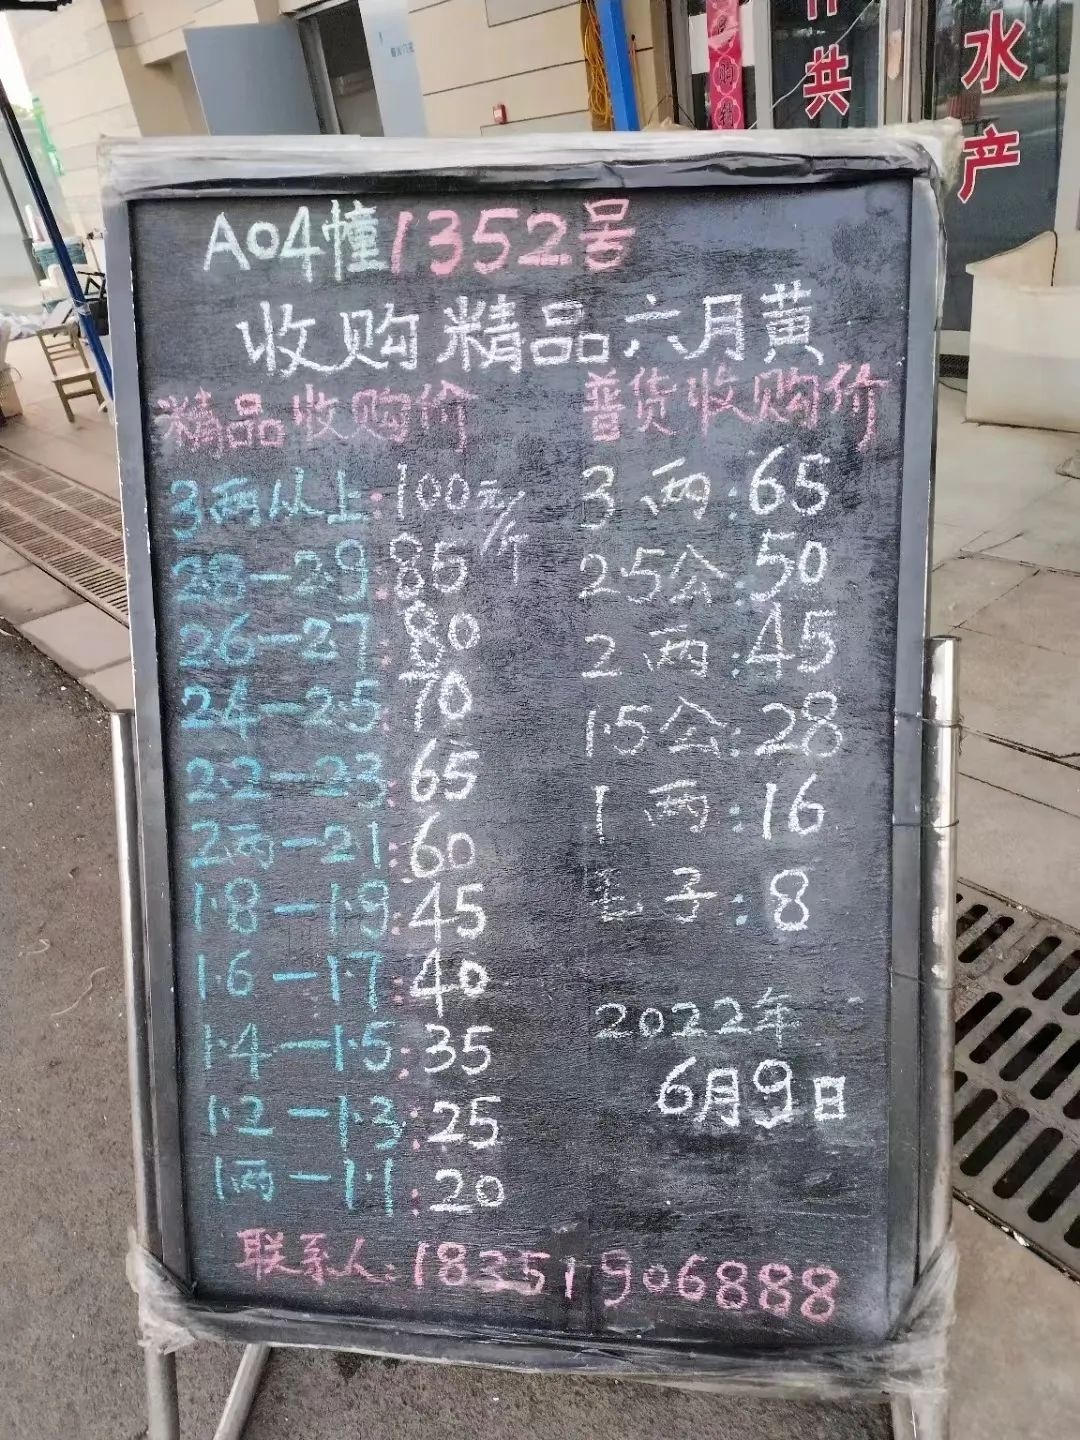 共
水
产
A04幢1352号
收购精品六月黄
精品收购价
3两以上:100元/斤
2.8-2.9:85
2.6-2.7:80
2.4-2.5:70
2.2-2.3:65
2两-2.1:60
1.8-1.9:45
1.6-1.7:40
1.4-1.5:35
1.2-1.3:25
1两-1.1:20
普货收购价
3两:65
2.5公:50
2两:45
1.5公:28
1两:16
毛子:8
2022年
6月9日
联系人:18351906888